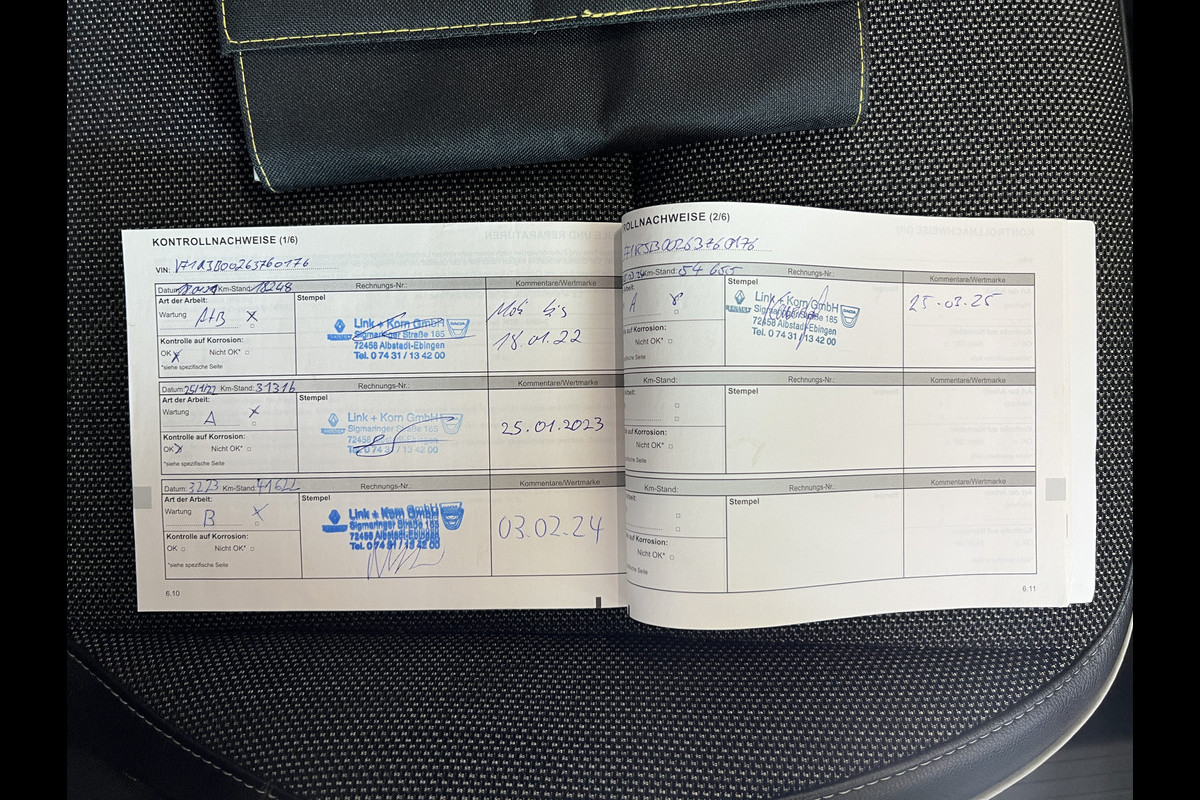 KONTROLLNACHWEISE (1/6)
VIN:
Datum: Km-Stand: 18248 Rechnungs-Nr.: Kommentare/Wertmarke
Art der Arbeit: Stempel
Wartung A+B x
Link + Korn GmbH
Sigmaringer Straße 185
72458 Albstadt-Ebingen
Tel. 0 74 31 / 13 42 00
bis
18.01.22
Kontrolle auf Korrosion:
OK x Nicht OK*
*siehe spezifische Seite
Datum: 25/1/22 Km-Stand: 31316 Rechnungs-Nr.: Kommentare/Wertmarke
Art der Arbeit: Stempel
Wartung A x
Link + Korn GmbH
Sigmaringer Straße 185
72458 Albstadt-Ebingen
Tel. 0 74 31 / 13 42 00
25.01.2023
Kontrolle auf Korrosion:
OK x Nicht OK*
*siehe spezifische Seite
Datum: 3223 Km-Stand: 41622 Rechnungs-Nr.: Kommentare/Wertmarke
Art der Arbeit: Stempel
Wartung B x
Link + Korn GmbH
Sigmaringer Straße 185
72458 Albstadt-Ebingen
Tel. 0 74 31 / 13 42 00
03.02.24
Kontrolle auf Korrosion:
OK Nicht OK*
*siehe spezifische Seite
6.10
ROLLNACHWEISE (2/6)
Km-Stand: 54 655 Rechnungs-Nr.: Kommentare/Wertmarke
Stempel
A
RENAULT
Link + Korn GmbH
Sigmaringer Straße 185
72458 Albstadt-Ebingen
Tel. 0 74 31 / 13 42 00
25.03.25
auf Korrosion:
Nicht OK*
Seite
Km-Stand: Rechnungs-Nr.: Kommentare/Wertmarke
Arbeit: Stempel
auf Korrosion:
Nicht OK*
Seite
Km-Stand: Rechnungs-Nr.: Kommentare/Wertmarke
Stempel
auf Korrosion:
Nicht OK*
Seite
6.11